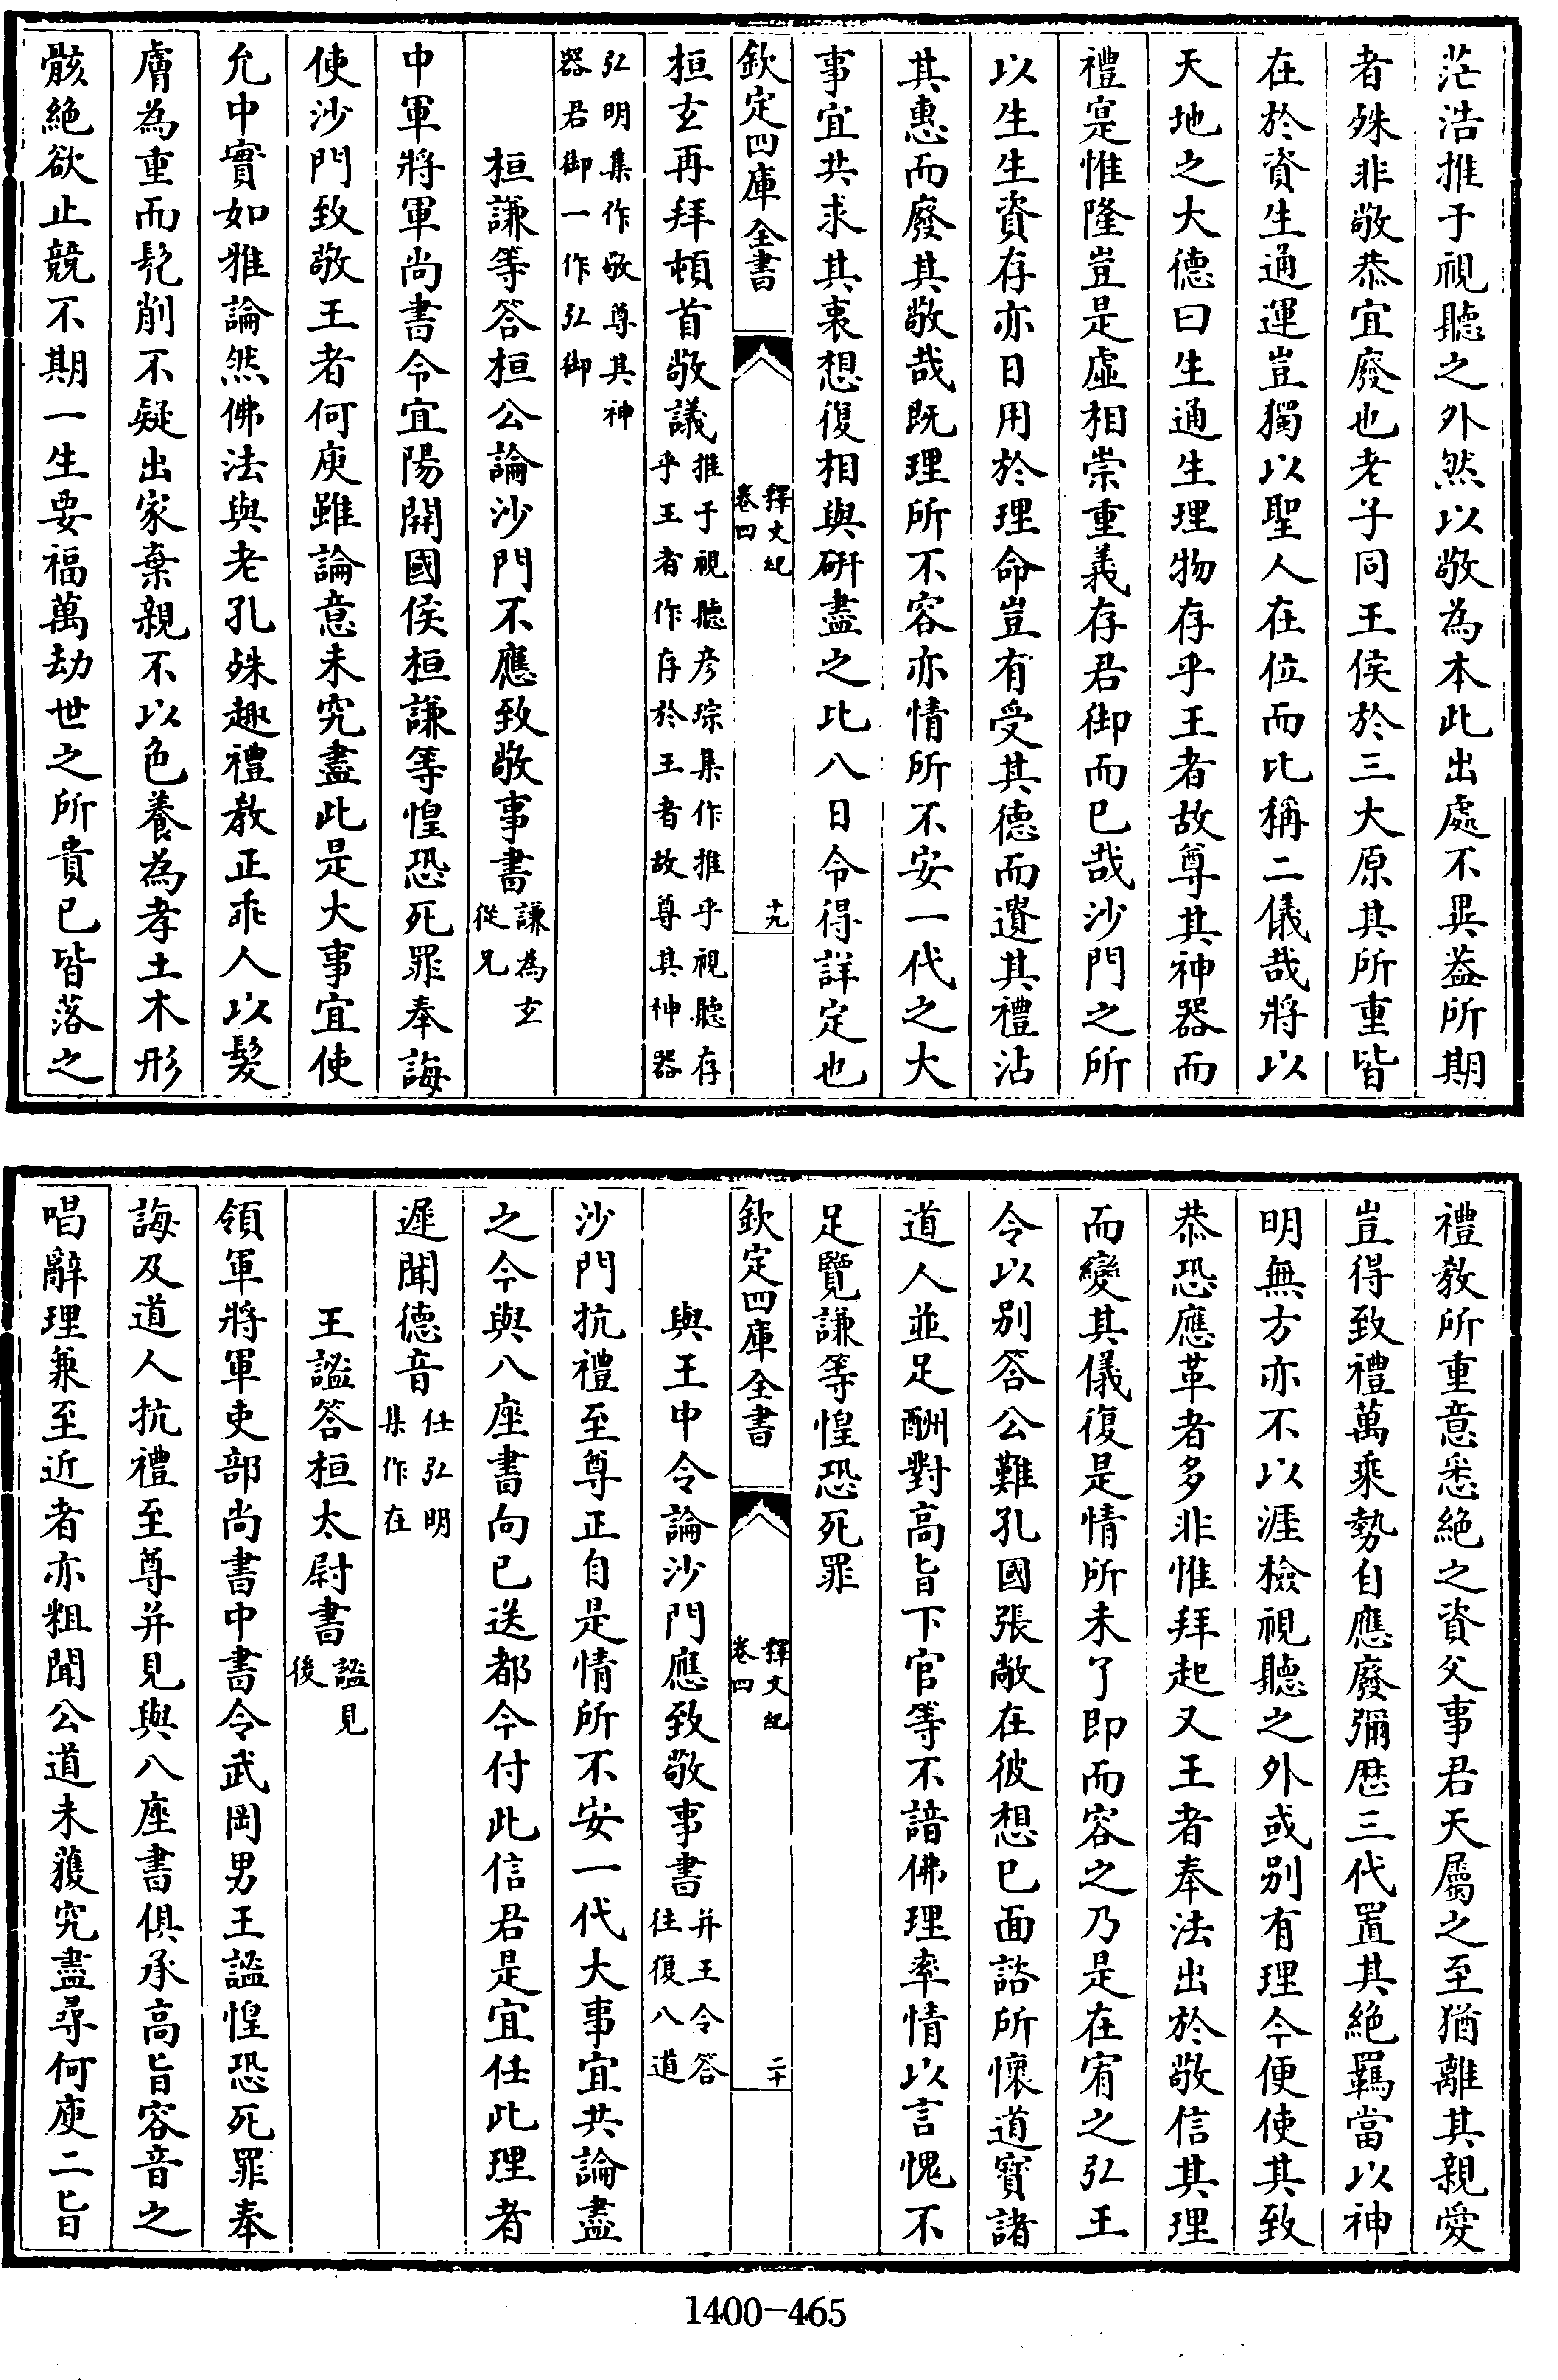 茫浩推于視聽之外然以敬為本此出處不異葢所期
者殊非敬恭宜廢也老子同王侯於三大原其所重皆
在於資生通運豈獨以聖人在位而比稱二儀哉將以
天地之大德曰生通生理物存乎王者故尊其神器而
禮寔惟隆豈是虛相崇重義存君御而已哉沙門之所
以生生資存亦日用於理命豈有受其德而遺其禮沾
其惠而廢其敬哉既理所不容亦情所不安一代之大
事宜共求其衷想復相與研盡之比八日令得詳定也
欽定四庫全書
釋文紀
卷四
十九
桓玄再拜頓首敬議推于視聽彦琮集作推乎視聽存
乎王者作存於王者故尊其神器
弘明集作敬尊其神
器君御一作弘御
桓謙等答桓公論沙門不應致敬事書謙為玄
從兄
中軍將軍尚書令宜陽開國侯桓謙等惶恐死罪奉誨
使沙門致敬王者何庾雖論意未究盡此是大事宜使
允中實如雅論然佛法與老孔殊趣禮教正乖人以髮
膚為重而髠削不疑出家棄親不以色養為孝土木形
骸絶欲止競不期一生要福萬劫世之所貴已皆落之
禮教所重意悉絶之資父事君天屬之至猶離其親愛
豈得致禮萬乘勢自應廢彌厯三代置其絶羈當以神
明無方亦不以涯檢視聽之外或别有理今便使其致
恭恐應革者多非惟拜起又王者奉法出於敬信其理
而變其儀復是情所未了即而容之乃是在宥之弘王
令以别答公難孔國張敞在彼想已面諮所懷道寶諸
道人並足酬對高旨下官等不諳佛理率情以言愧不
足覽謙等惶恐死罪
欽定四庫全書
釋文紀
卷四
二十
與王中令論沙門應致敬事書并王令答
往復八道
沙門抗禮至尊正自是情所不安一代大事宜共論盡
之今與八座書向已送都今付此信君是宜任此理者
遲聞德音任弘明
集作在
王謐答桓太尉書謐見
後
領軍將軍吏部尚書中書令武岡男王謐惶恐死罪奉
誨及道人抗禮至尊并見與八座書俱承高旨容音之
唱辭理兼至近者亦粗聞公道未獲究盡尋何庾二旨
1400-465